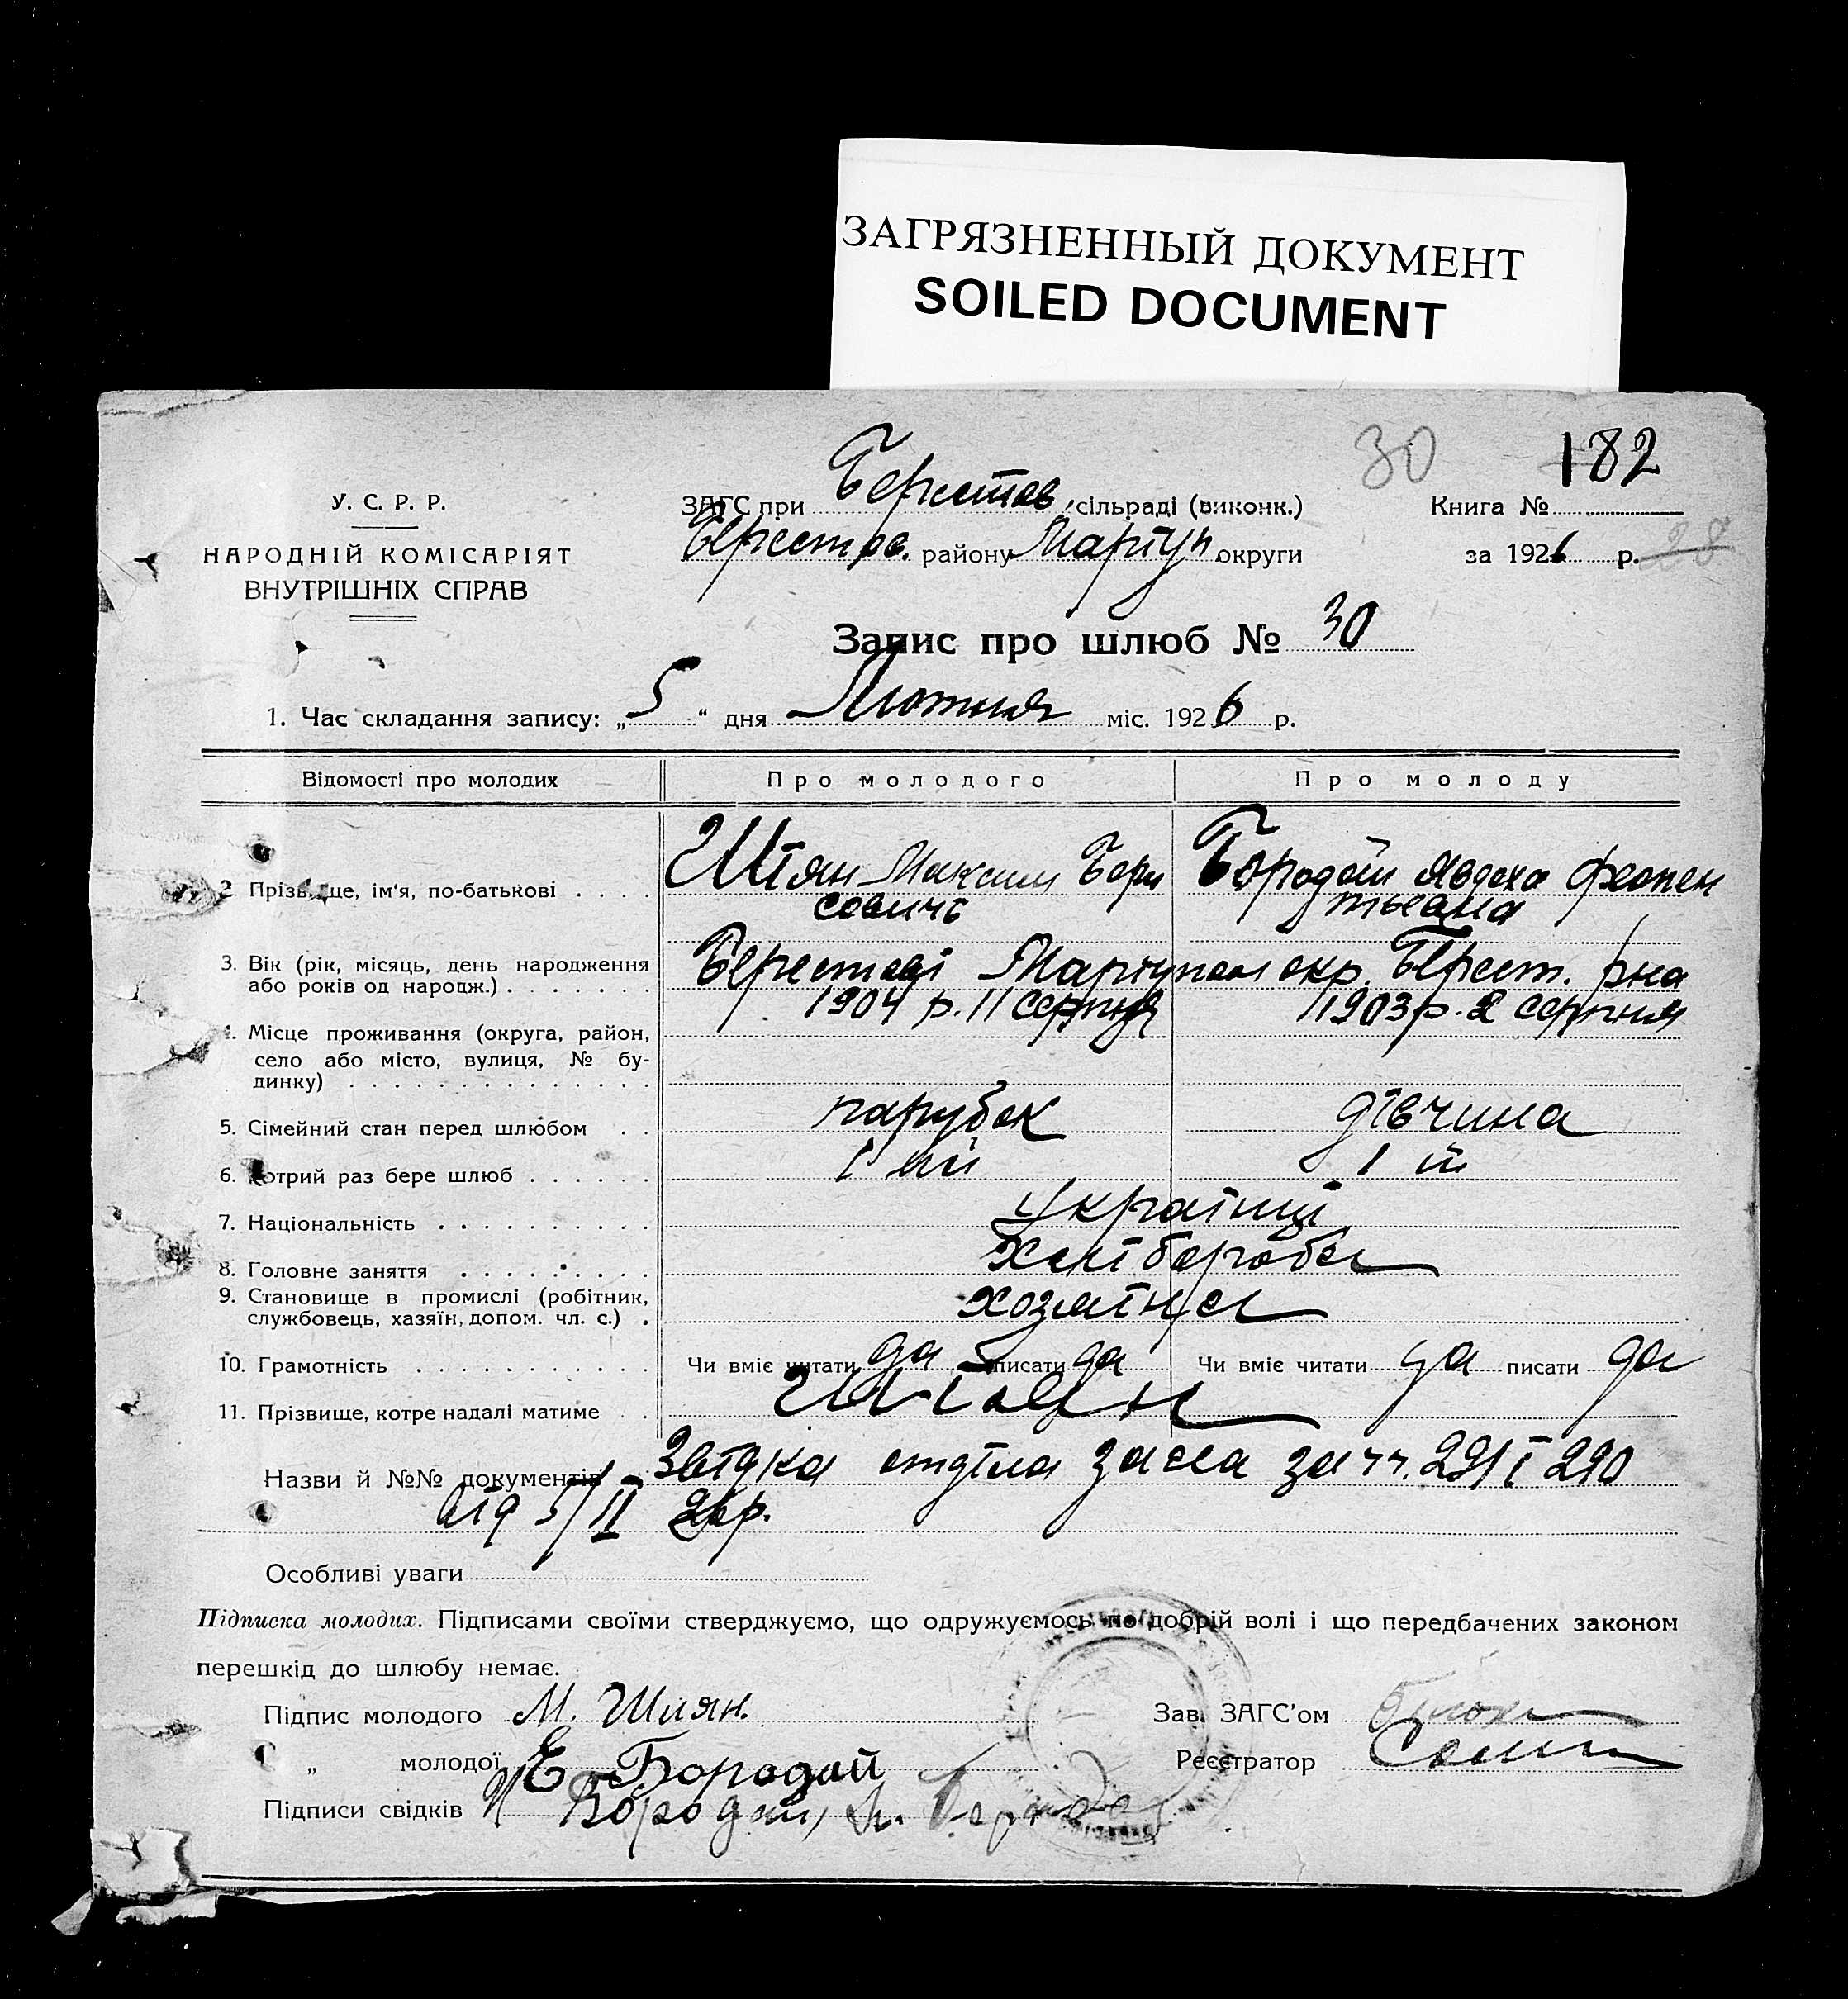 ЗАГРЯЗНЕННЫЙ ДОКУМЕНТ
SOILED DOCUMENT
30 182
У. С. Р. Р.
НАРОДНІЙ КОМІСАРІЯТ
ВНУТРІШНІХ СПРАВ
ЗАГС при Берестов. сільраді (виконк.)
Берестов. району Маріуп. округи
Книга №
за 1926 р. 28
Запис про шлюб № 30
1. Час складання запису: „5“ дня Лютня міс. 1926 р.
Відомості про молодих Про молодого Про молоду
2. Прізвище, ім'я, по-батькові Штян Максим Бори Бородай Явдоха Феопен
совичь тьевна
3. Вік (рік, місяць, день народження Берестові Маріупол окр. Берест. рна
або років од народж.) 1904 р. 11 серпня 1903 р. 2 серпня
4. Місце проживання (округа, район,
село або місто, вулиця, № бу-
динку)
5. Сімейний стан перед шлюбом парубок дівчина
6. Котрий раз бере шлюб 1 ий 1 й
7. Національність Українці
8. Головне заняття Хліборобы
9. Становище в промислі (робітник, хозяїны
службовець, хазяїн, допом. чл. с.)
10. Грамотність Чи вміє читати да писати да Чи вміє читати да писати да
11. Прізвище, котре надалі матиме Штян
Назви й №№ документів Звідка отділа загса за чч. 291 і 290
від 5/II 26 р.
Особливі уваги
Підписка молодих. Підписами своїми стверджуємо, що одружуємось по добрій волі і що передбачених законом
перешкід до шлюбу немає.
Підпис молодого М. Штян.
Зав. ЗАГС'ом
„ молодої Е Бородай
Реєстратор
Підписи свідків Бородай,